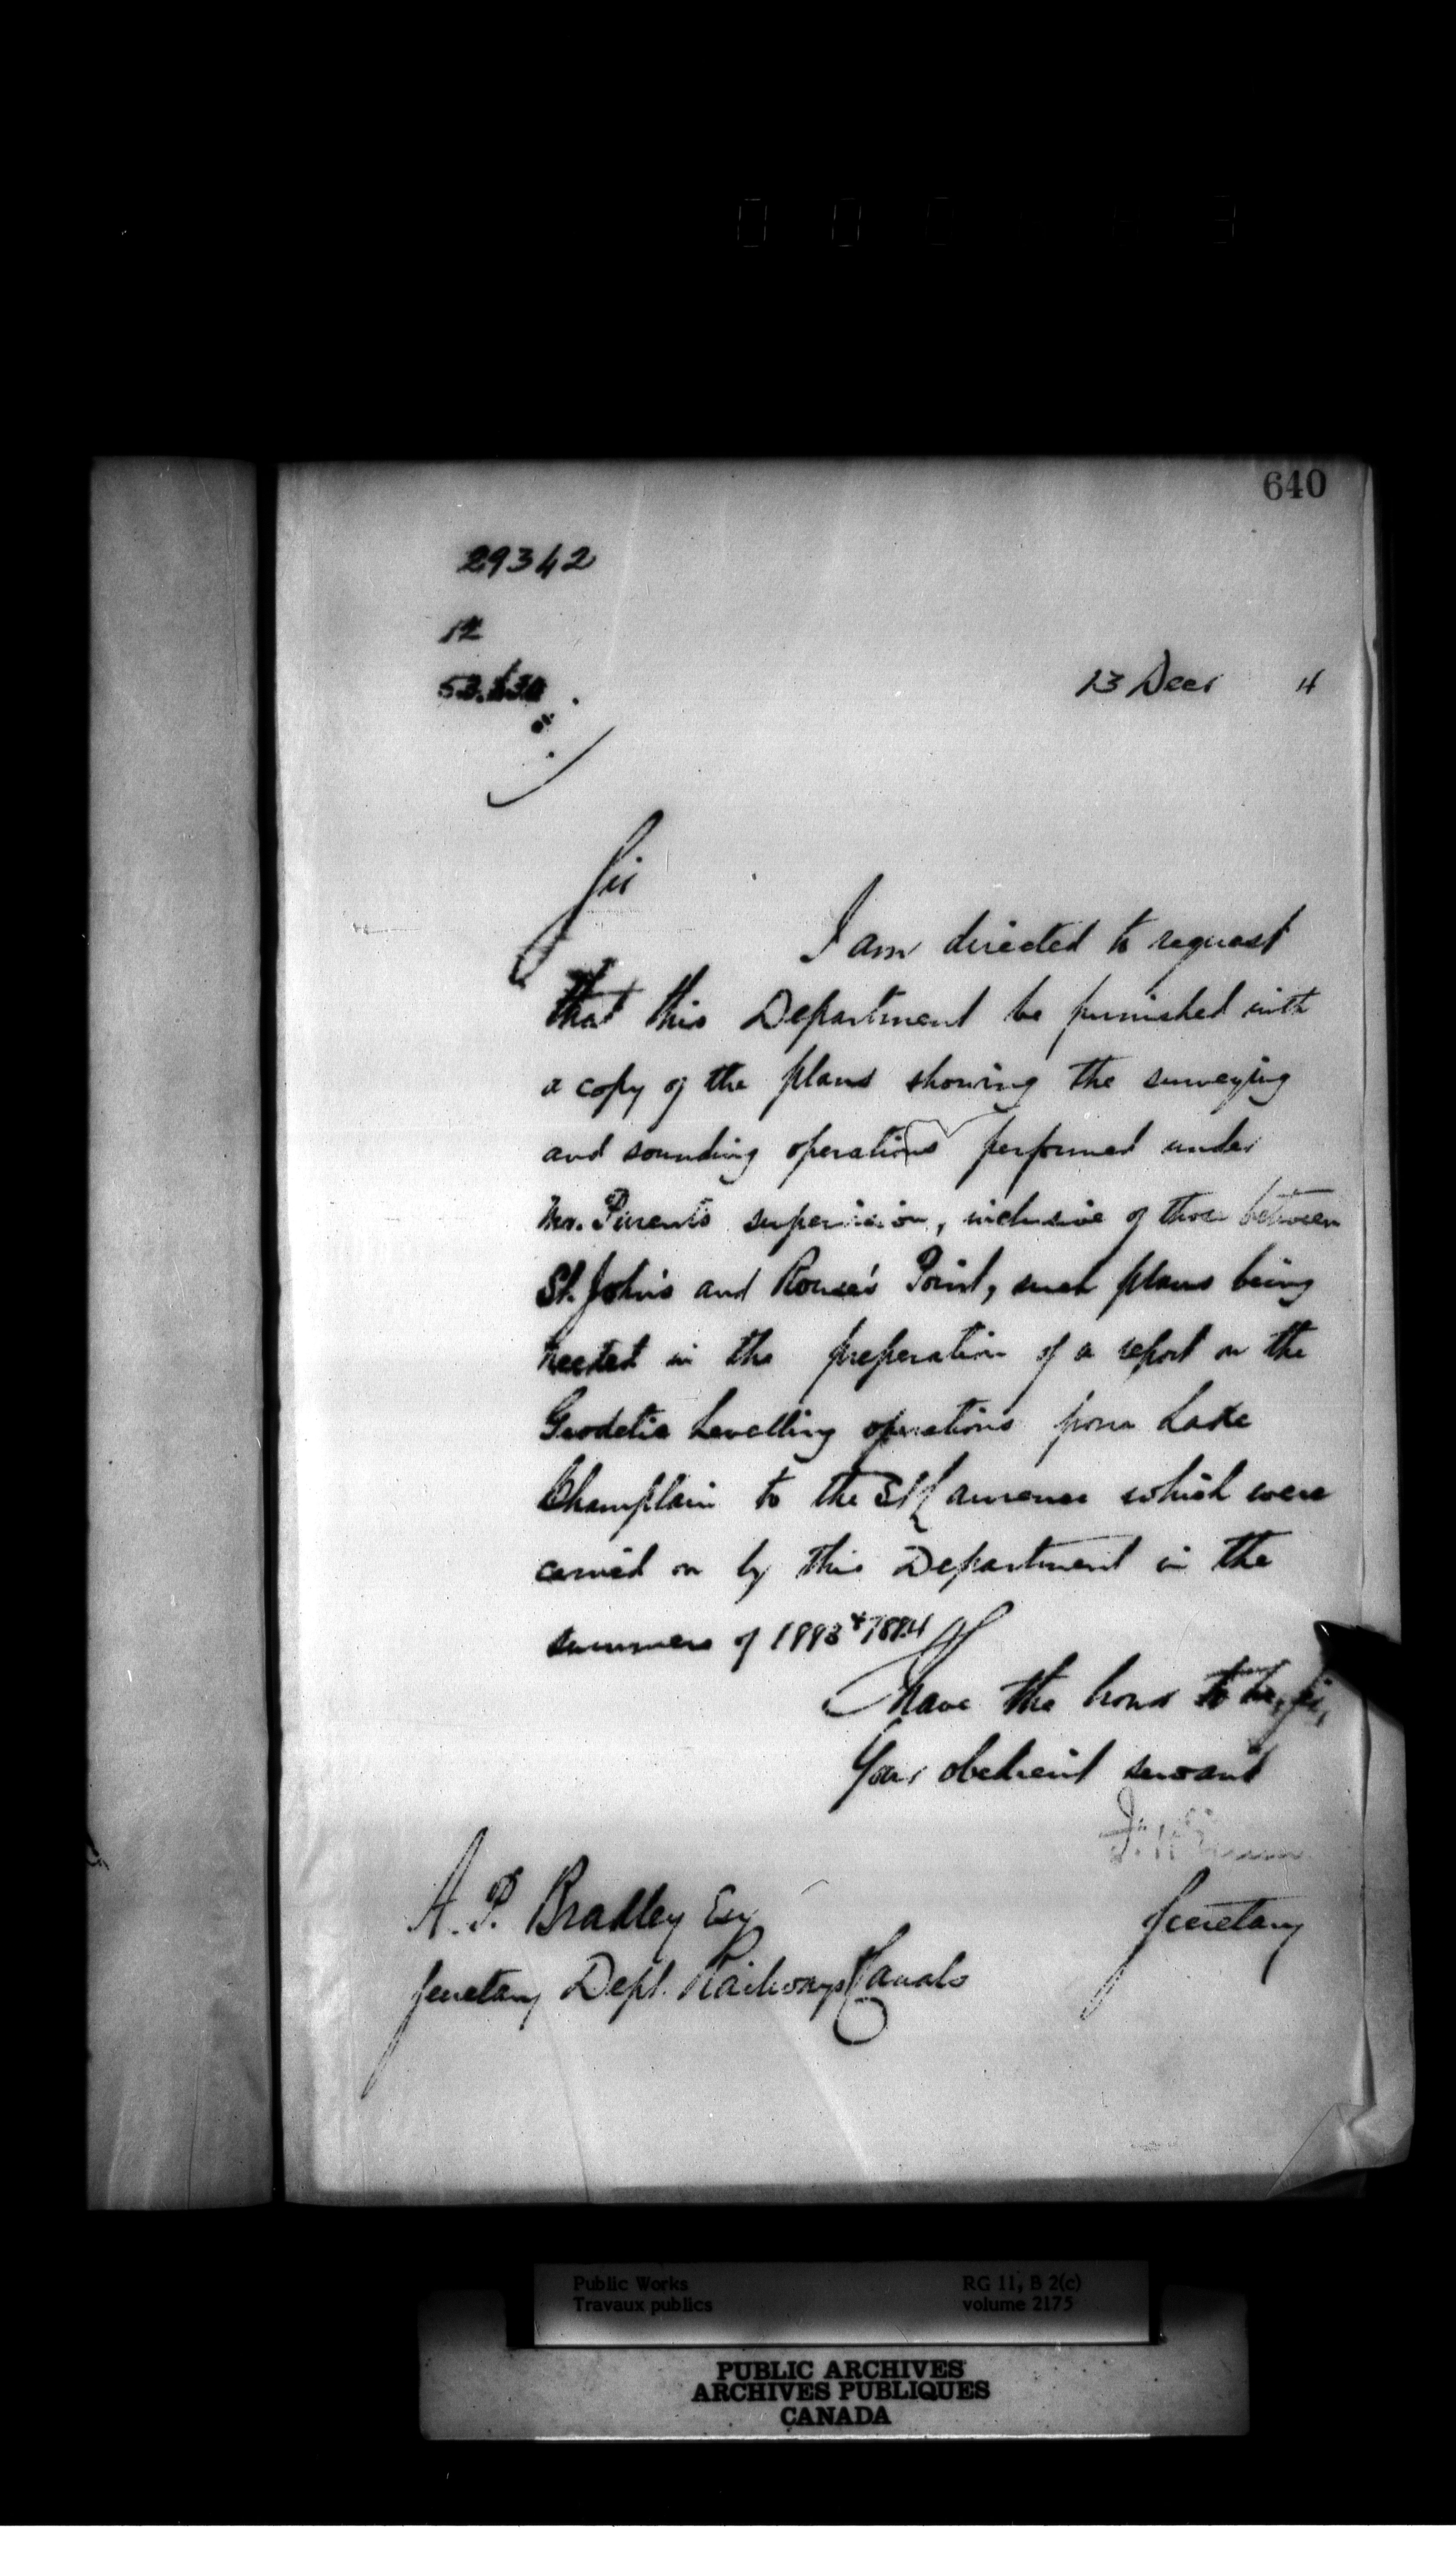 640
29342
12
13 Decr 4
Sir
I am directed to request
that this Department be furnished with
a copy of the plans showing the surveying
and sounding operations performed under
Mr. Parent's supervision, inclusive of those between
St. John's and Rouse's Point, such plans being
needed in the preperation of a report on the
Geodetic Levelling operations from Lake
Champlain to the St Lawrence which were
carried on by this Department in the
summers of 1883 & 1884
I have the honor to be, Sir,
Your obedient servant
Secretary
A. P. Bradley Esq
Secretary Dept. Railways Canals
Public Works
Travaux publics
RG 11, B 2(c)
volume 2175
PUBLIC ARCHIVES
ARCHIVES PUBLIQUES
CANADA